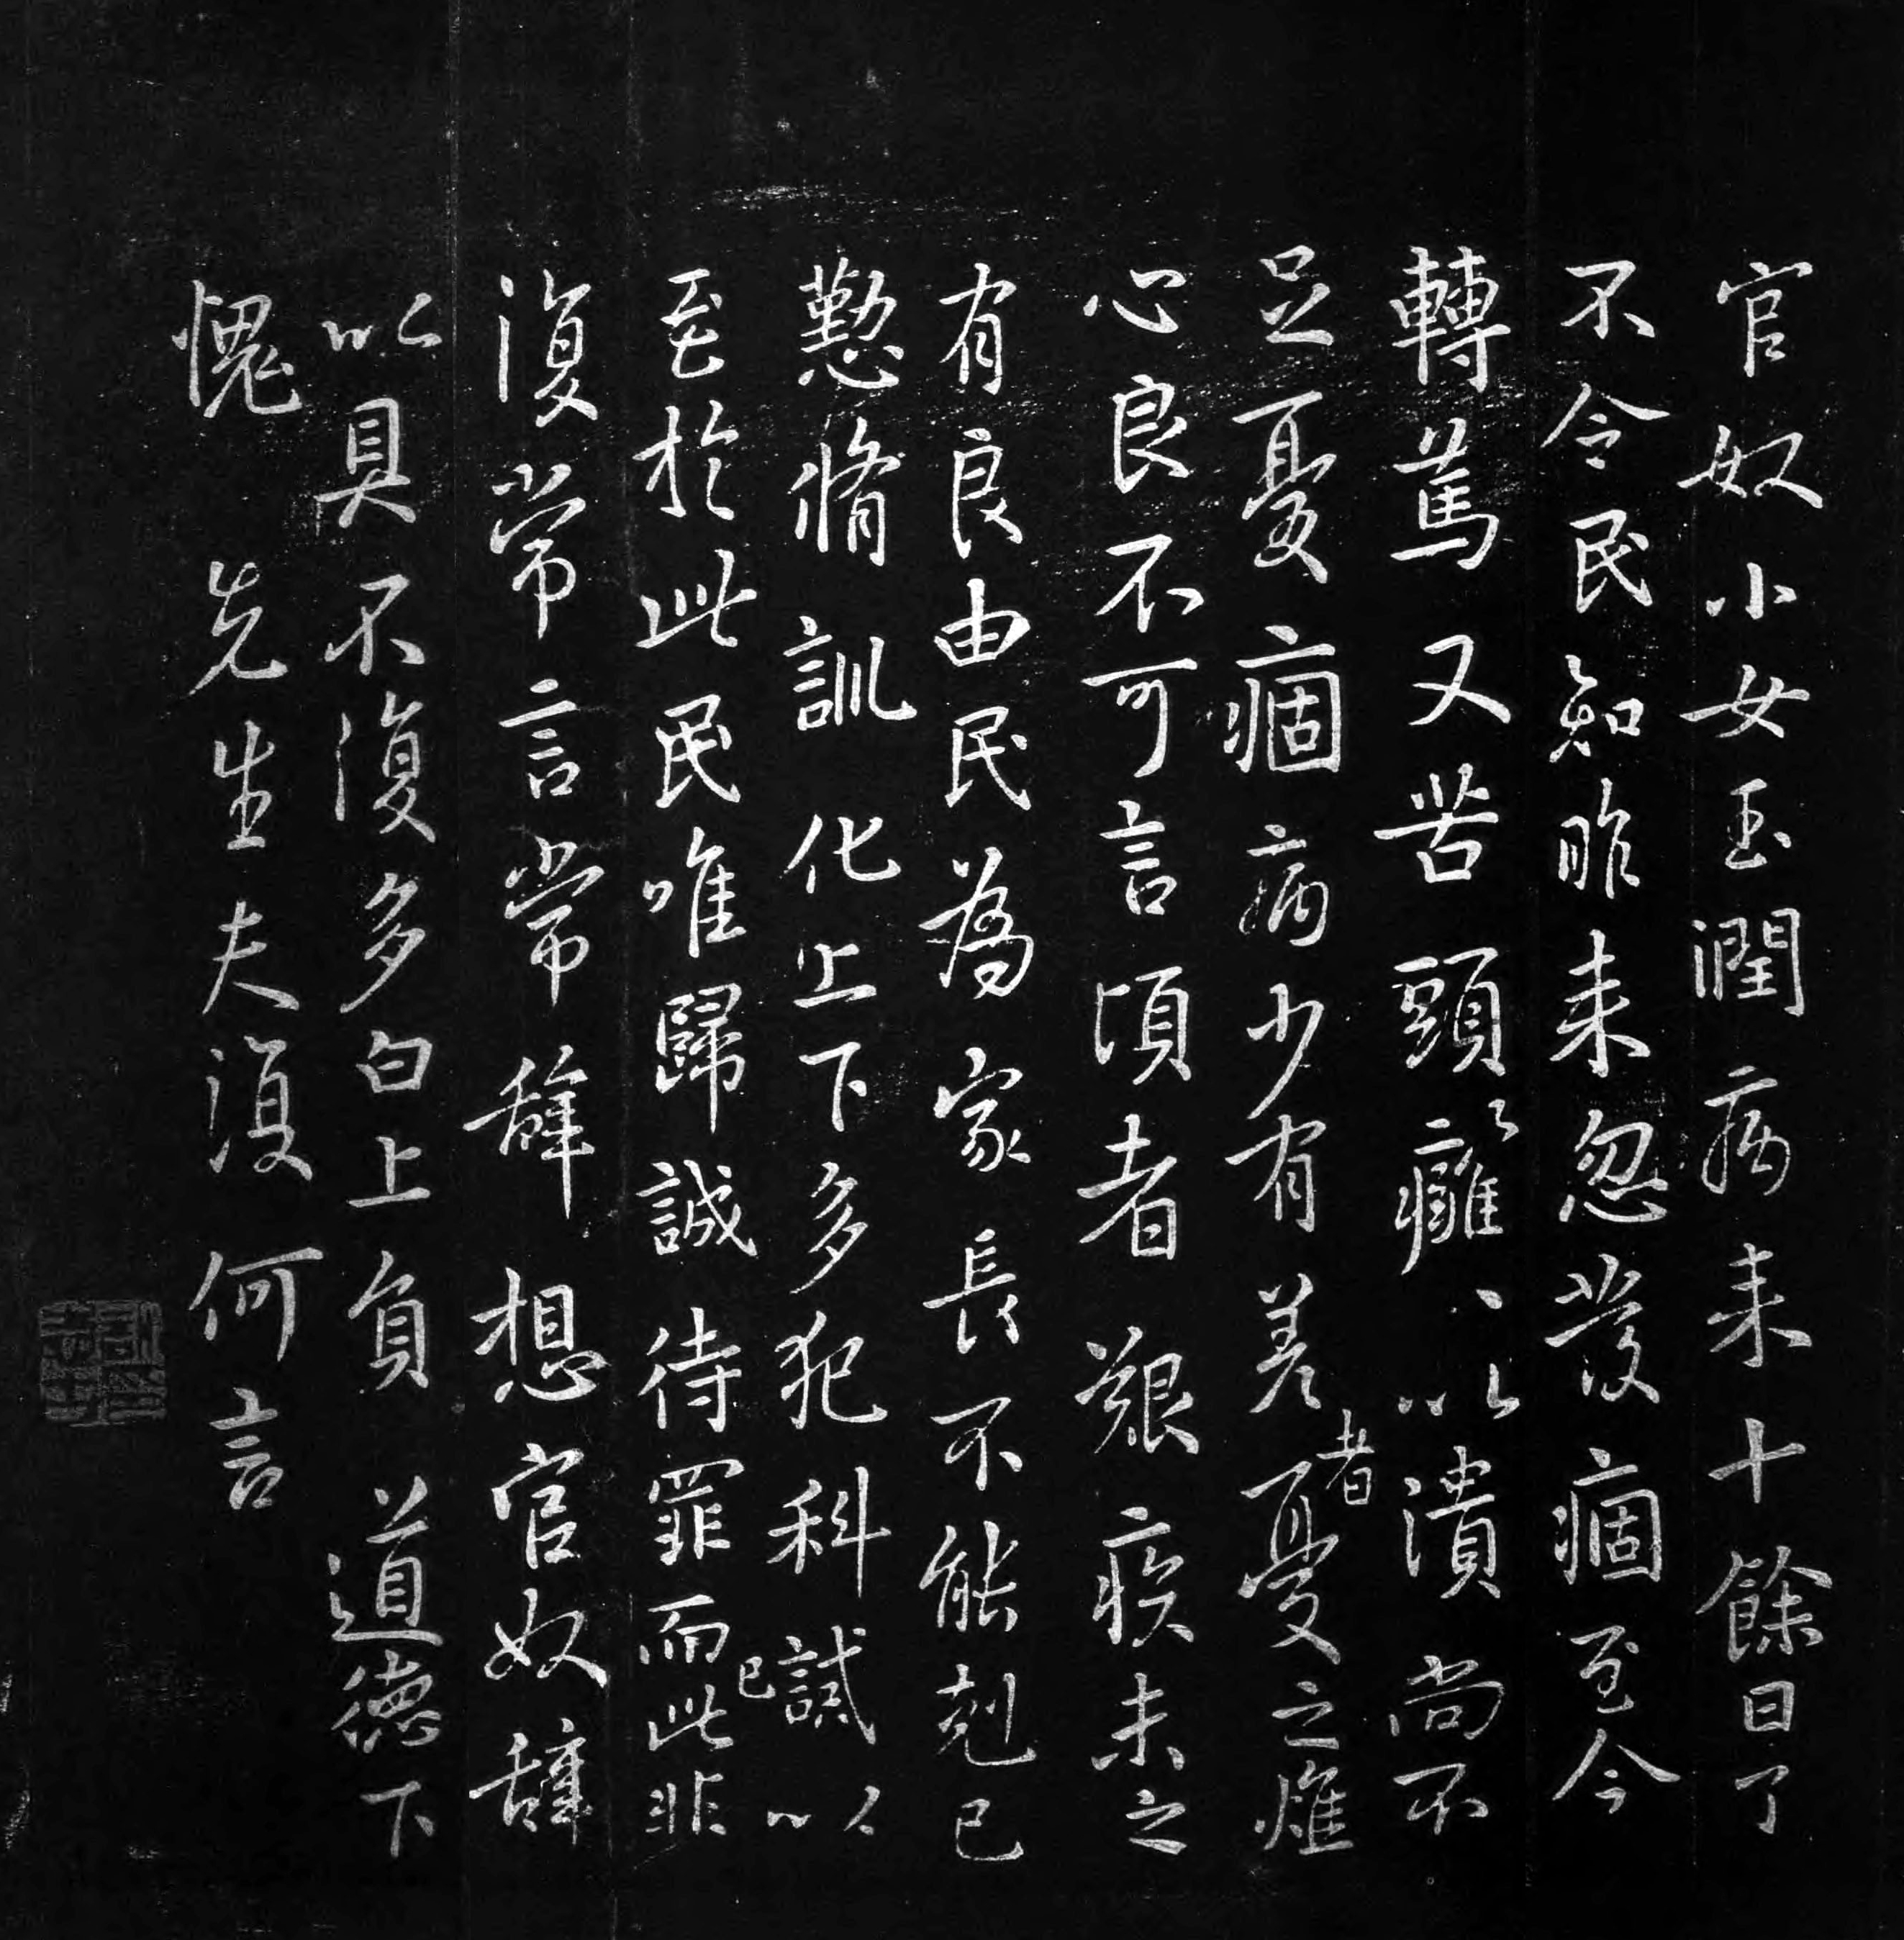 官奴小女玉潤病来十餘日了
不令民知昨来忽發痼至今
轉篤又苦頭癰頭癰以潰尚不
足憂痼病少有差者憂之燋
心良不可言頃者艱疾未之
有良由民為家長不能剋己
懃脩訓化上下多犯科誡以
至於此民唯歸誠待罪而已此非
復常言常辭想官奴辭
以具不復多白上負道德下
愧先生夫復何言